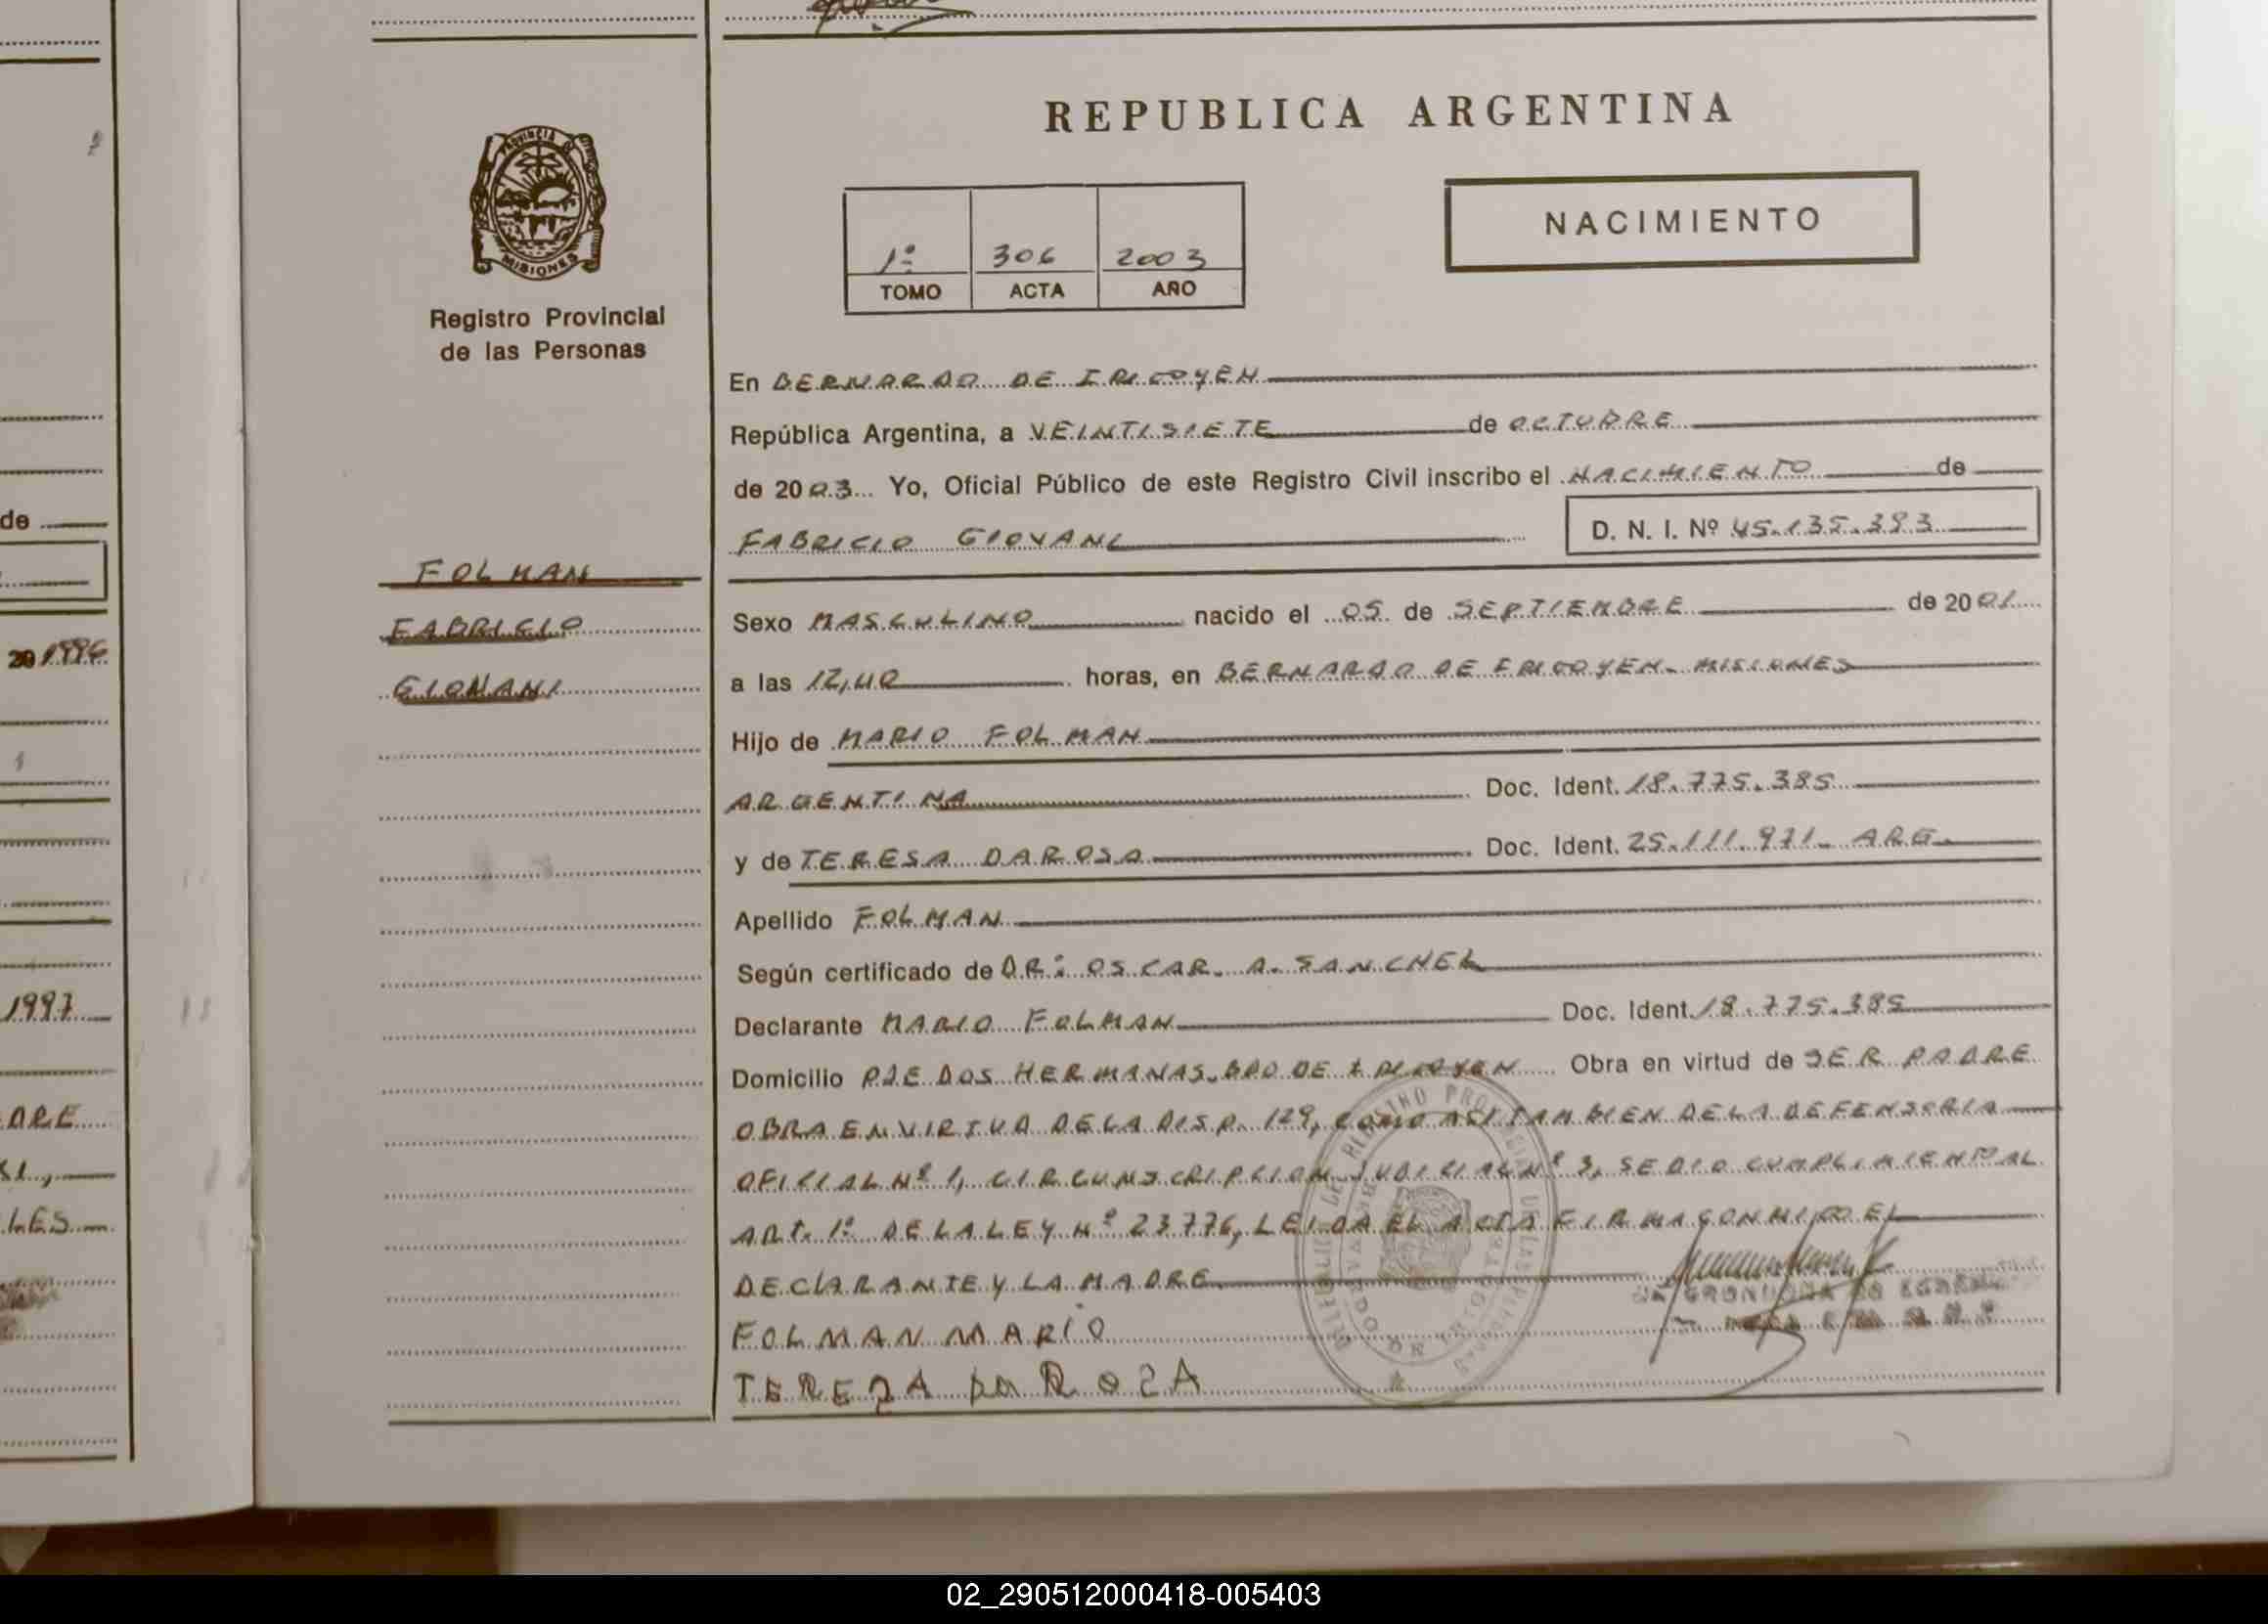 REPUBLICA ARGENTINA
PROVINCIA DE
MISIONES
Registro Provincial
de las Personas
1º 306 2003
TOMO ACTA AÑO
NACIMIENTO
En BERNARDO DE IRIGOYEN
República Argentina, a VEINTISIETE de OCTUBRE
de 2003 Yo, Oficial Público de este Registro Civil inscribo el NACIMIENTO de
FABRICIO GIOVANI D. N. I. Nº 45.135.383
FOLMAN
FABRICIO
GIOVANI
Sexo MASCULINO nacido el 05 de SEPTIEMBRE de 2001
a las 12,40 horas, en BERNARDO DE IRIGOYEN. MISIONES
Hijo de MARIO FOLMAN
ARGENTINA Doc. Ident. 18.775.385
y de TERESA DAROSA Doc. Ident. 25.111.971. ARG.
Apellido FOLMAN
Según certificado de DR: OSCAR. A. SANCHEZ
Declarante MARIO FOLMAN Doc. Ident. 18.775.385
Domicilio PJE DOS HERMANAS. BDO DE IRIGOYEN Obra en virtud de SER PADRE
OBRA EN VIRTUD DE LA DISP. 129, COMO ASI TAMBIEN DE LA DEFENSORIA
OFICIAL Nº 1, CIRCUNSCRIPCION JUDICIAL Nº 3, SE DIO CUMPLIMIENTO AL
ART. 1º DE LA LEY Nº 23776, LEIDA EL ACTA FIRMA CONMIGO EL
DECLARANTE Y LA MADRE
FOLMAN MARIO
TEREZA DA ROZA
de
20 1996
1997
DRE
LES
02_290512000418-005403